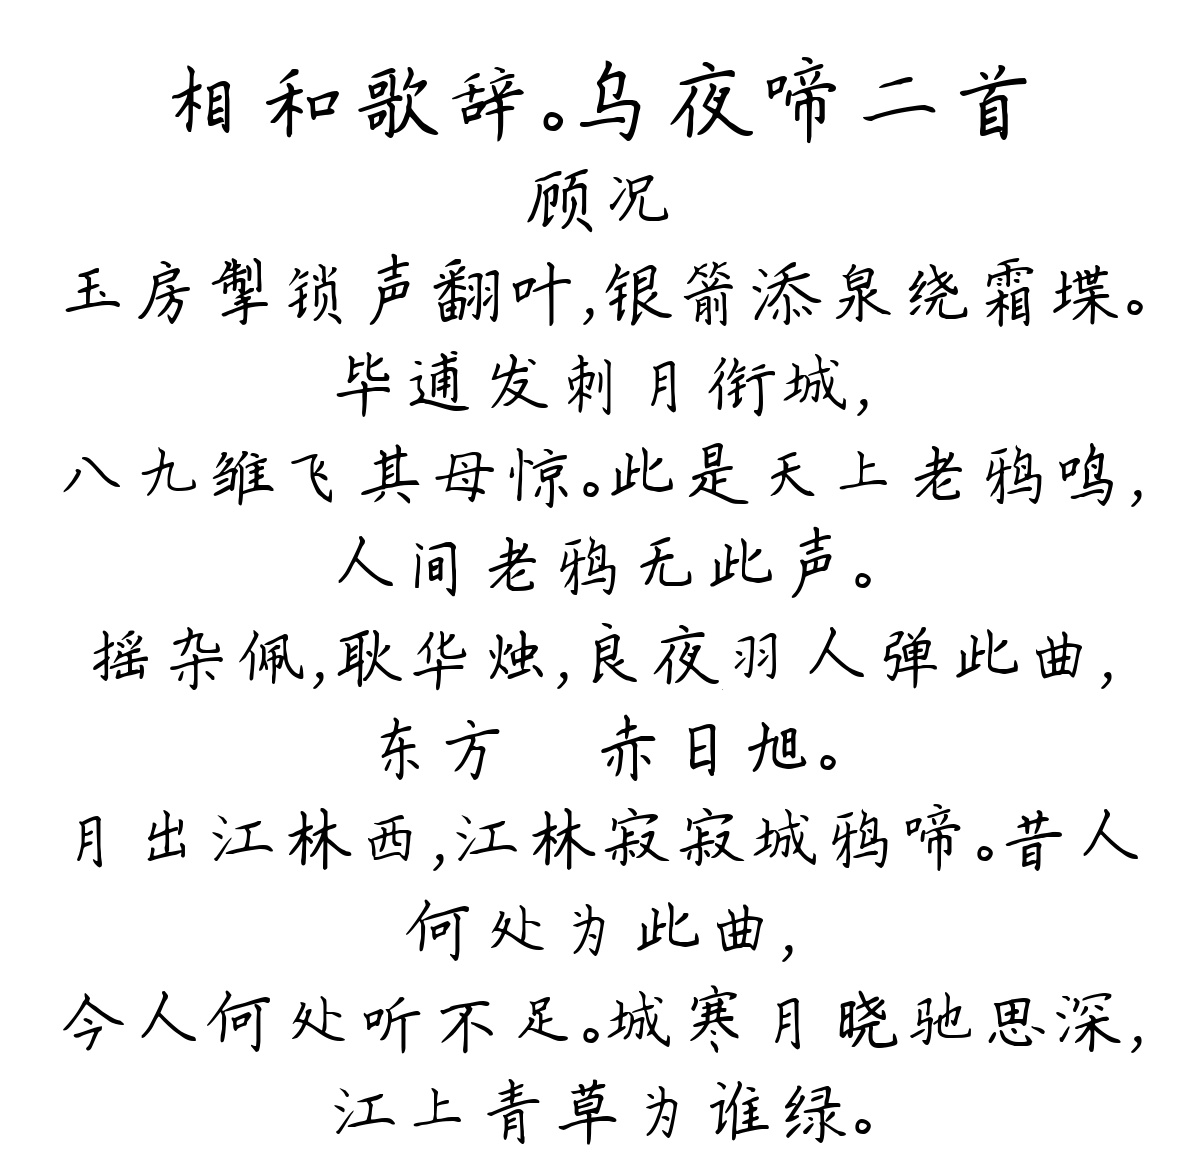 相和歌辞。乌夜啼二首
顾况
玉房掣锁声翻叶,银箭添泉绕霜堞。
毕逋发刺月衔城,
八九雏飞其母惊。此是天上老鸦鸣,
人间老鸦无此声。
摇杂佩,耿华烛,良夜羽人弹此曲,
东方 赤日旭。
月出江林西,江林寂寂城鸦啼。昔人
何处为此曲,
今人何处听不足。城寒月晓驰思深,
江上青草为谁绿。